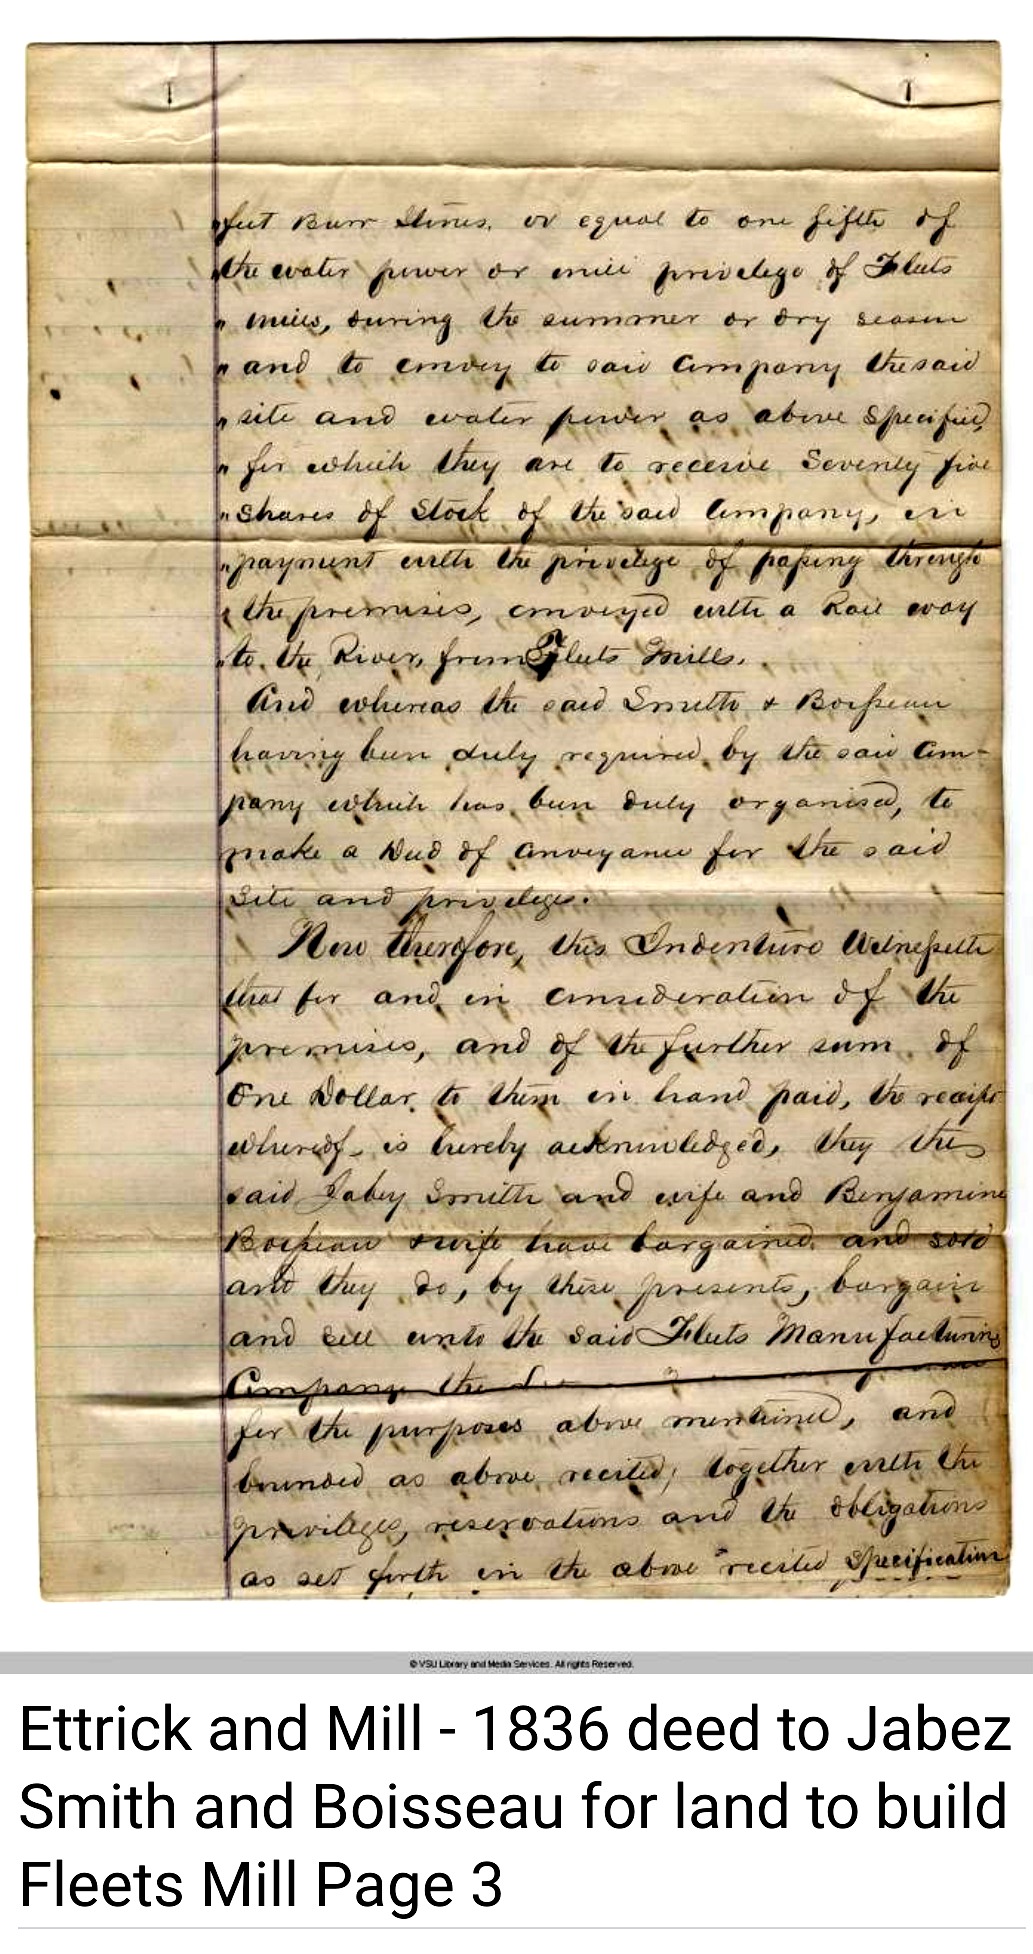 "feet Burr Stones, or equal to one fifth of
"the water power or mill privelege of Fleets
" mills, during the summer or dry season
" and to convey to said Company the said
" site and water power as above Specified,
" for which they are to receive Seventy five
" Shares of Stock of the said Company, in
" payment with the privelege of passing through
" the premises, conveyed with a Rail way
" to the River, from Fleets Mills.
And whereas the said Smith & Boisseau
having been duly required by the said Com-
pany which has been duly organised, to
make a Deed of Conveyance for the said
Site and privileges.
Now therefore, this Indenture Witnesseth
that for and in consideration of the
premises, and of the further sum of
One Dollar, to them in hand paid, the receipt
whereof is hereby acknowledged, they the
said Jabez Smith and wife and Benjamine
Boisseau & wife have bargained and sold
and they do, by these presents, bargain
and sell unto the said Fleets Manufacturing
Company the
for the purposes above mentioned, and
bounded as above recited; together with the
privileges, reservations and the obligations
as set forth in the above recited Specification
© VSU Library and Media Services. All rights Reserved.
Ettrick and Mill - 1836 deed to Jabez
Smith and Boisseau for land to build
Fleets Mill Page 3